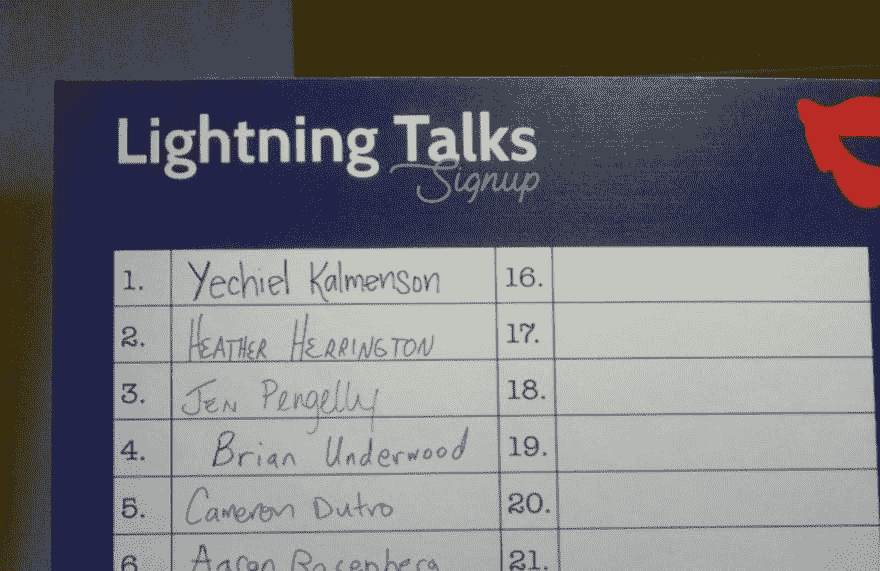 Lightning Talks
Signup
1. Yechiel Kalmenson 16.
2. HEATHER HERRINGTON 17.
3. JEN Pengelly 18.
4. Brian Underwood 19.
5. Cameron Dutro 20.
6. Aaron Rosenberg 21.